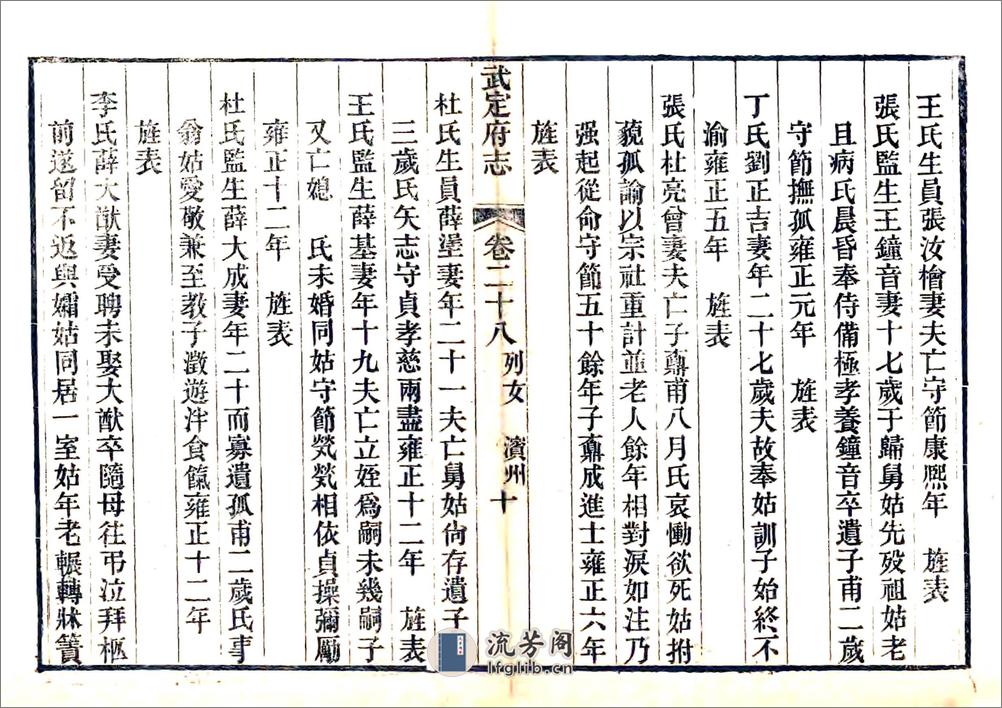 王氏生員張汝檜妻夫亡守節康熙年　旌表
張氏監生王鐘音妻十七歲于歸舅姑先歿祖姑老
且病氏晨昏奉侍備極孝養鐘音卒遺子甫二歲
守節撫孤雍正元年　旌表
丁氏劉正吉妻年二十七歲夫故奉姑訓子始終不
渝雍正五年　旌表
張氏杜亮曾妻夫亡子鼐甫八月氏哀慟欲死姑拊
藐孤諭以宗社重計並老人餘年相對淚如注乃
强起從命守節五十餘年子鼐成進士雍正六年
旌表
武定府志　卷二十八　列女　濱州　十
杜氏生員薛瑩妻年二十一夫亡舅姑尙存遺子
三歲氏矢志守貞孝慈兩盡雍正十二年　旌表
王氏監生薛基妻年十九夫亡立姪爲嗣未幾嗣子
又亡媳　氏未婚同姑守節煢煢相依貞操彌勵
雍正十二年　旌表
杜氏監生薛大成妻年二十而寡遺孤甫二歲氏事
翁姑愛敬兼至教子澂遊泮食餼雍正十二年
旌表
李氏薛大猷妻受聘未娶大猷卒隨母往弔泣拜柩
前遂留不返與孀姑同居一室姑年老輾轉牀簀
流芳阁
lfglib.cn